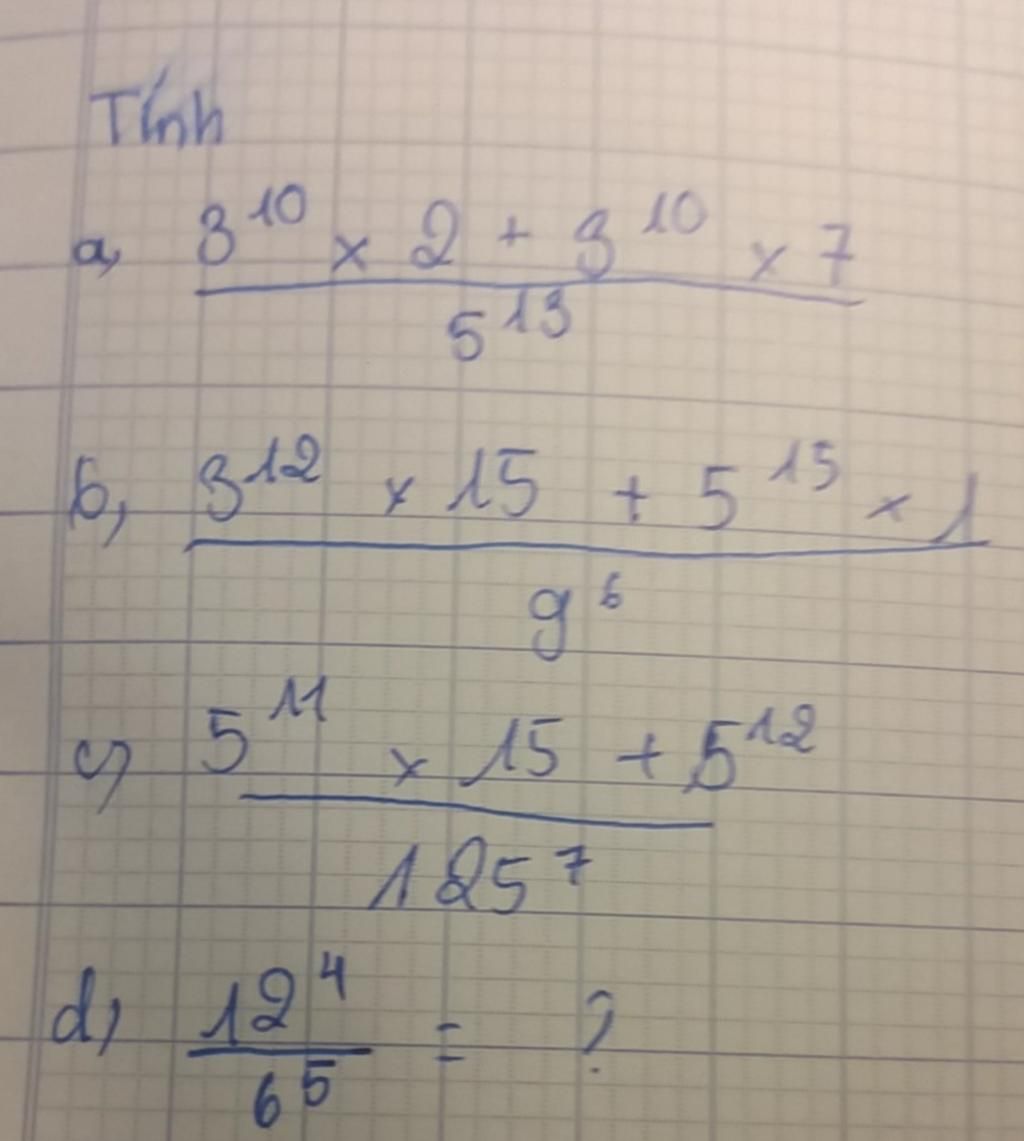 Tính
a, 3^10 × 2 + 3^10 × 7
5^13
b, 3^12 × 15 + 5^15 × 1
9^6
c, 5^11 × 15 + 5^12
125^7
d, 12^4 = ?
6^5